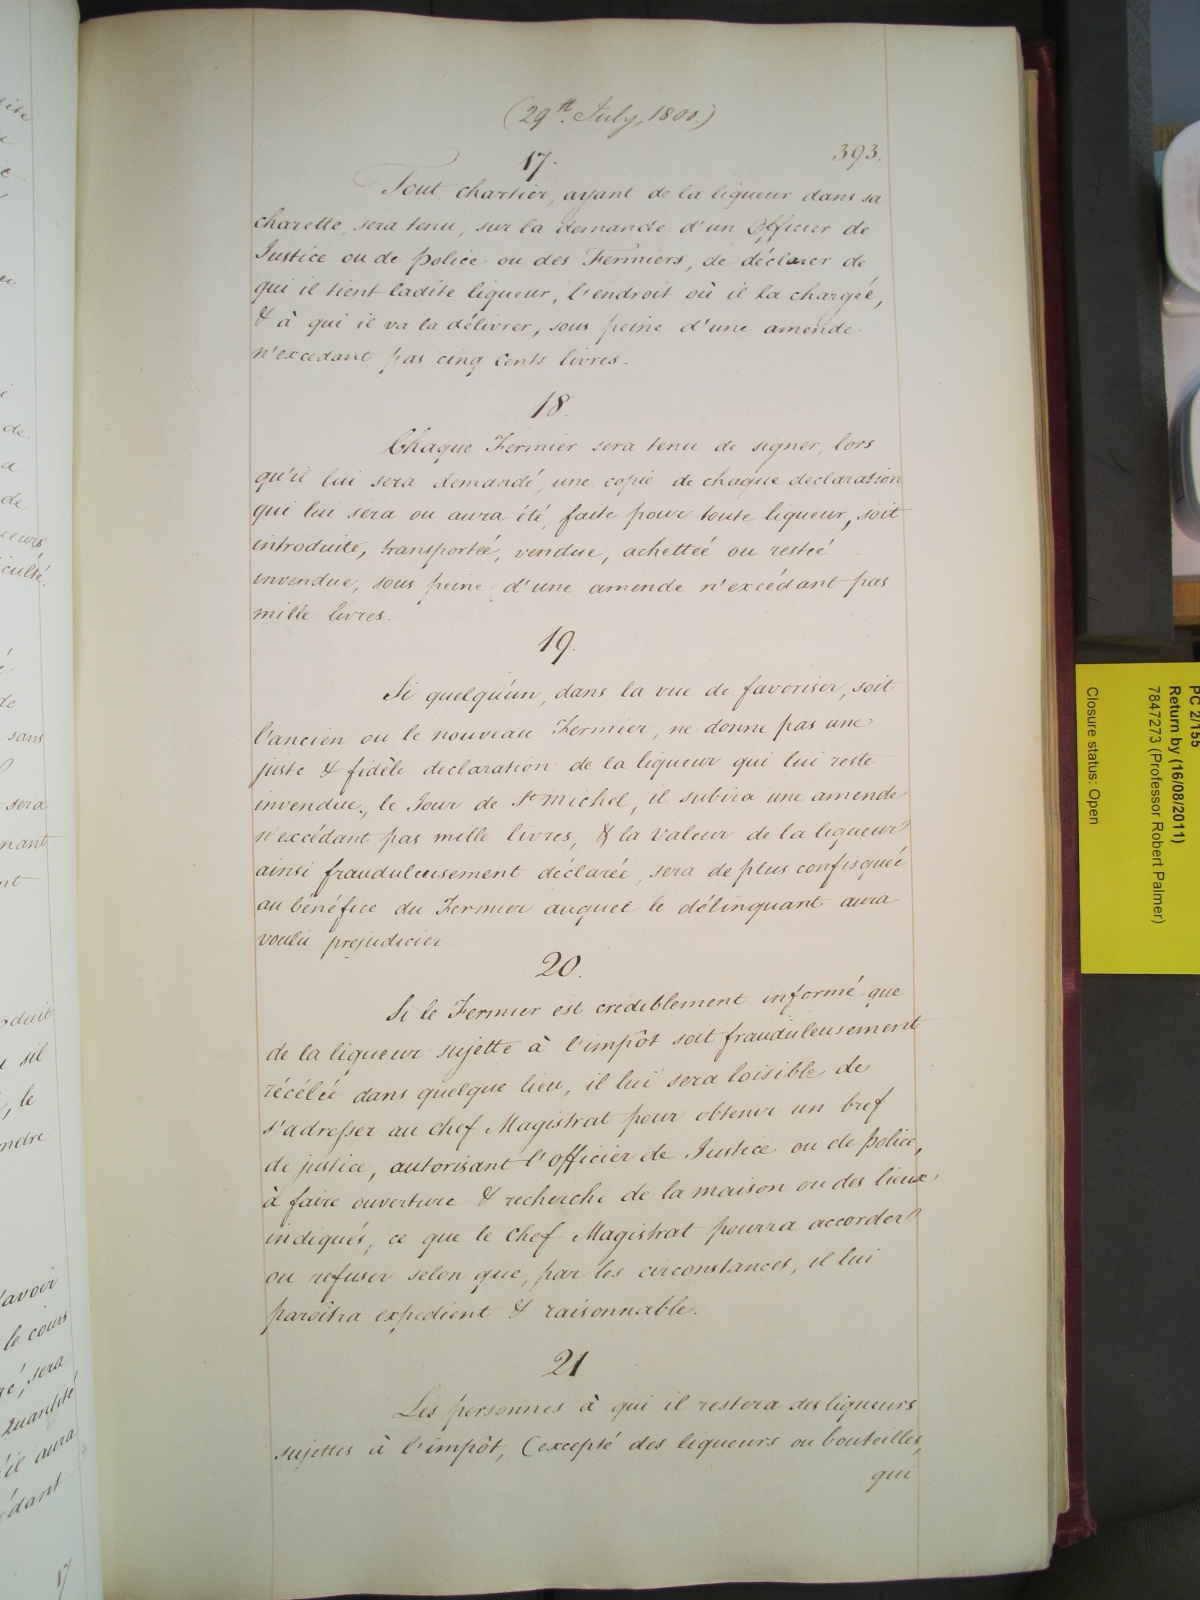 (29th. July, 1800.)
393.
17.
Tout chartier, ayant de la liqueur dans sa
charette, sera tenu, sur la demande d'un Officier de
Justice ou de Police ou des Fermiers, de déclarer de
qui il tient ladite liqueur, l'endroit où il l'a chargée,
& à qui il va la délivrer, sous peine d'une amende
n'excedant pas cinq Cents livres.
18.
Chaque Fermier sera tenu de signer, lors
qu'il lui sera demandé, une copie de chaque declaration
qui lui sera ou aura été, faite pour toute liqueur, soit
introduite, transportéé, vendue, achettéé ou restéé
invendue, sous peine d'une amende n'excédant pas
mille livres.
19.
Si quelqu'un, dans la vue de favoriser, soit
l'ancien ou le nouveau Fermier, ne donne pas une
juste & fidèle declaration de la liqueur qui lui reste
invendue, le Jour de St Michel, il subira une amende
n'excédant pas mille livres, & la valeur de la liqueur
ainsi frauduleusement déclarée, sera de plus confisquéé
au bénéfice du Fermier auquel le délinquant aura
voulu prejudicier
20.
Si le Fermier est crédiblement informé que
de la liqueur sujette à l'impôt soit frauduleusement
récéléé dans quelque lieu, il lui sera loisible de
s'adresser au chef Magistrat pour obtenir un bref
de justice, autorisant l'officier de Justice ou de Police,
à faire ouverture & recherche de la maison ou des lieux
indiqués, ce que le Chef Magistrat pourra accorder
ou refuser selon que, par les circonstances, il lui
paroitra expedient & raisonnable.
21
Les personnes à qui il restera des liqueurs
sujettes à l'impôt, (excepté des liqueurs ou bouteilles,
qui
de
a
de
ueurs,
culté.
de
sans
sera
nant
nt
oduit
sil
, le
ndre
avoir
le cours
sera
Quantité
il aura
édant
17
PC 2/155
Return by (16/08/2011)
7847273 (Professor Robert Palmer)
Closure status: Open